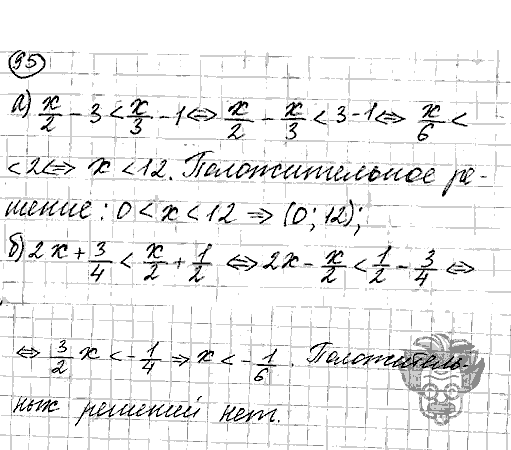 95
а) x/2 - 3 < x/3 - 1 ⇔ x/2 - x/3 < 3 - 1 ⇔ x/6 <
< 2 ⇔ x < 12. Положительное ре-
шение: 0 < x < 12 ⇒ (0; 12);
б) 2x + 3/4 < x/2 + 1/2 ⇔ 2x - x/2 < 1/2 - 3/4 ⇔
⇔ 3/2 x < -1/4 ⇒ x < -1/6. Положитель-
ных решений нет.